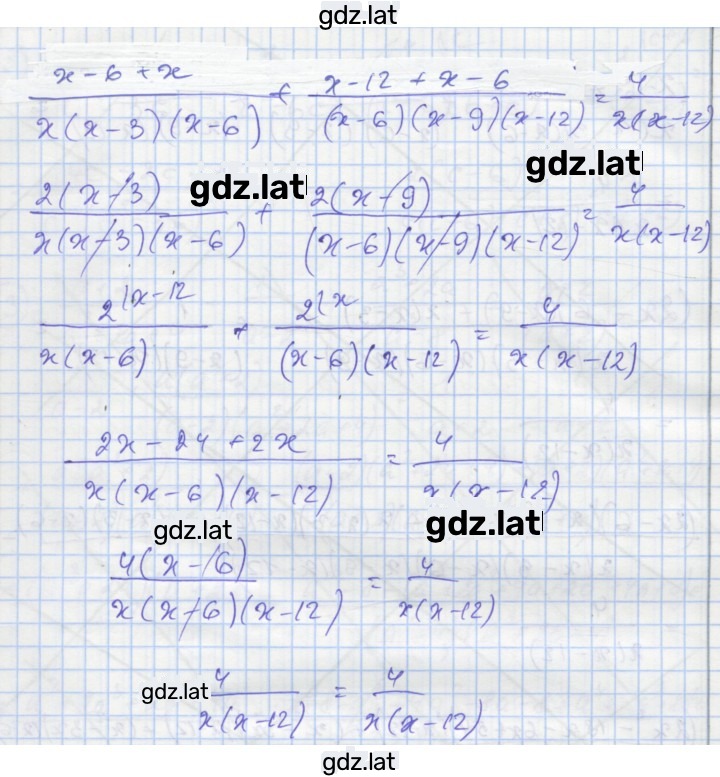 gdz.lat
x - 6 + x / x(x - 3)(x - 6) + x - 12 + x - 6 / (x - 6)(x - 9)(x - 12) = 4 / x(x - 12)
gdz.lat
gdz.lat
2(x - 3) / x(x - 3)(x - 6) + 2(x - 9) / (x - 6)(x - 9)(x - 12) = 4 / x(x - 12)
2(x - 12 / x(x - 6) + 2(x / (x - 6)(x - 12) = 4 / x(x - 12)
2x - 24 + 2x / x(x - 6)(x - 12) = 4 / x(x - 12)
gdz.lat
gdz.lat
4(x - 6) / x(x - 6)(x - 12) = 4 / x(x - 12)
gdz.lat
4 / x(x - 12) = 4 / x(x - 12)
gdz.lat